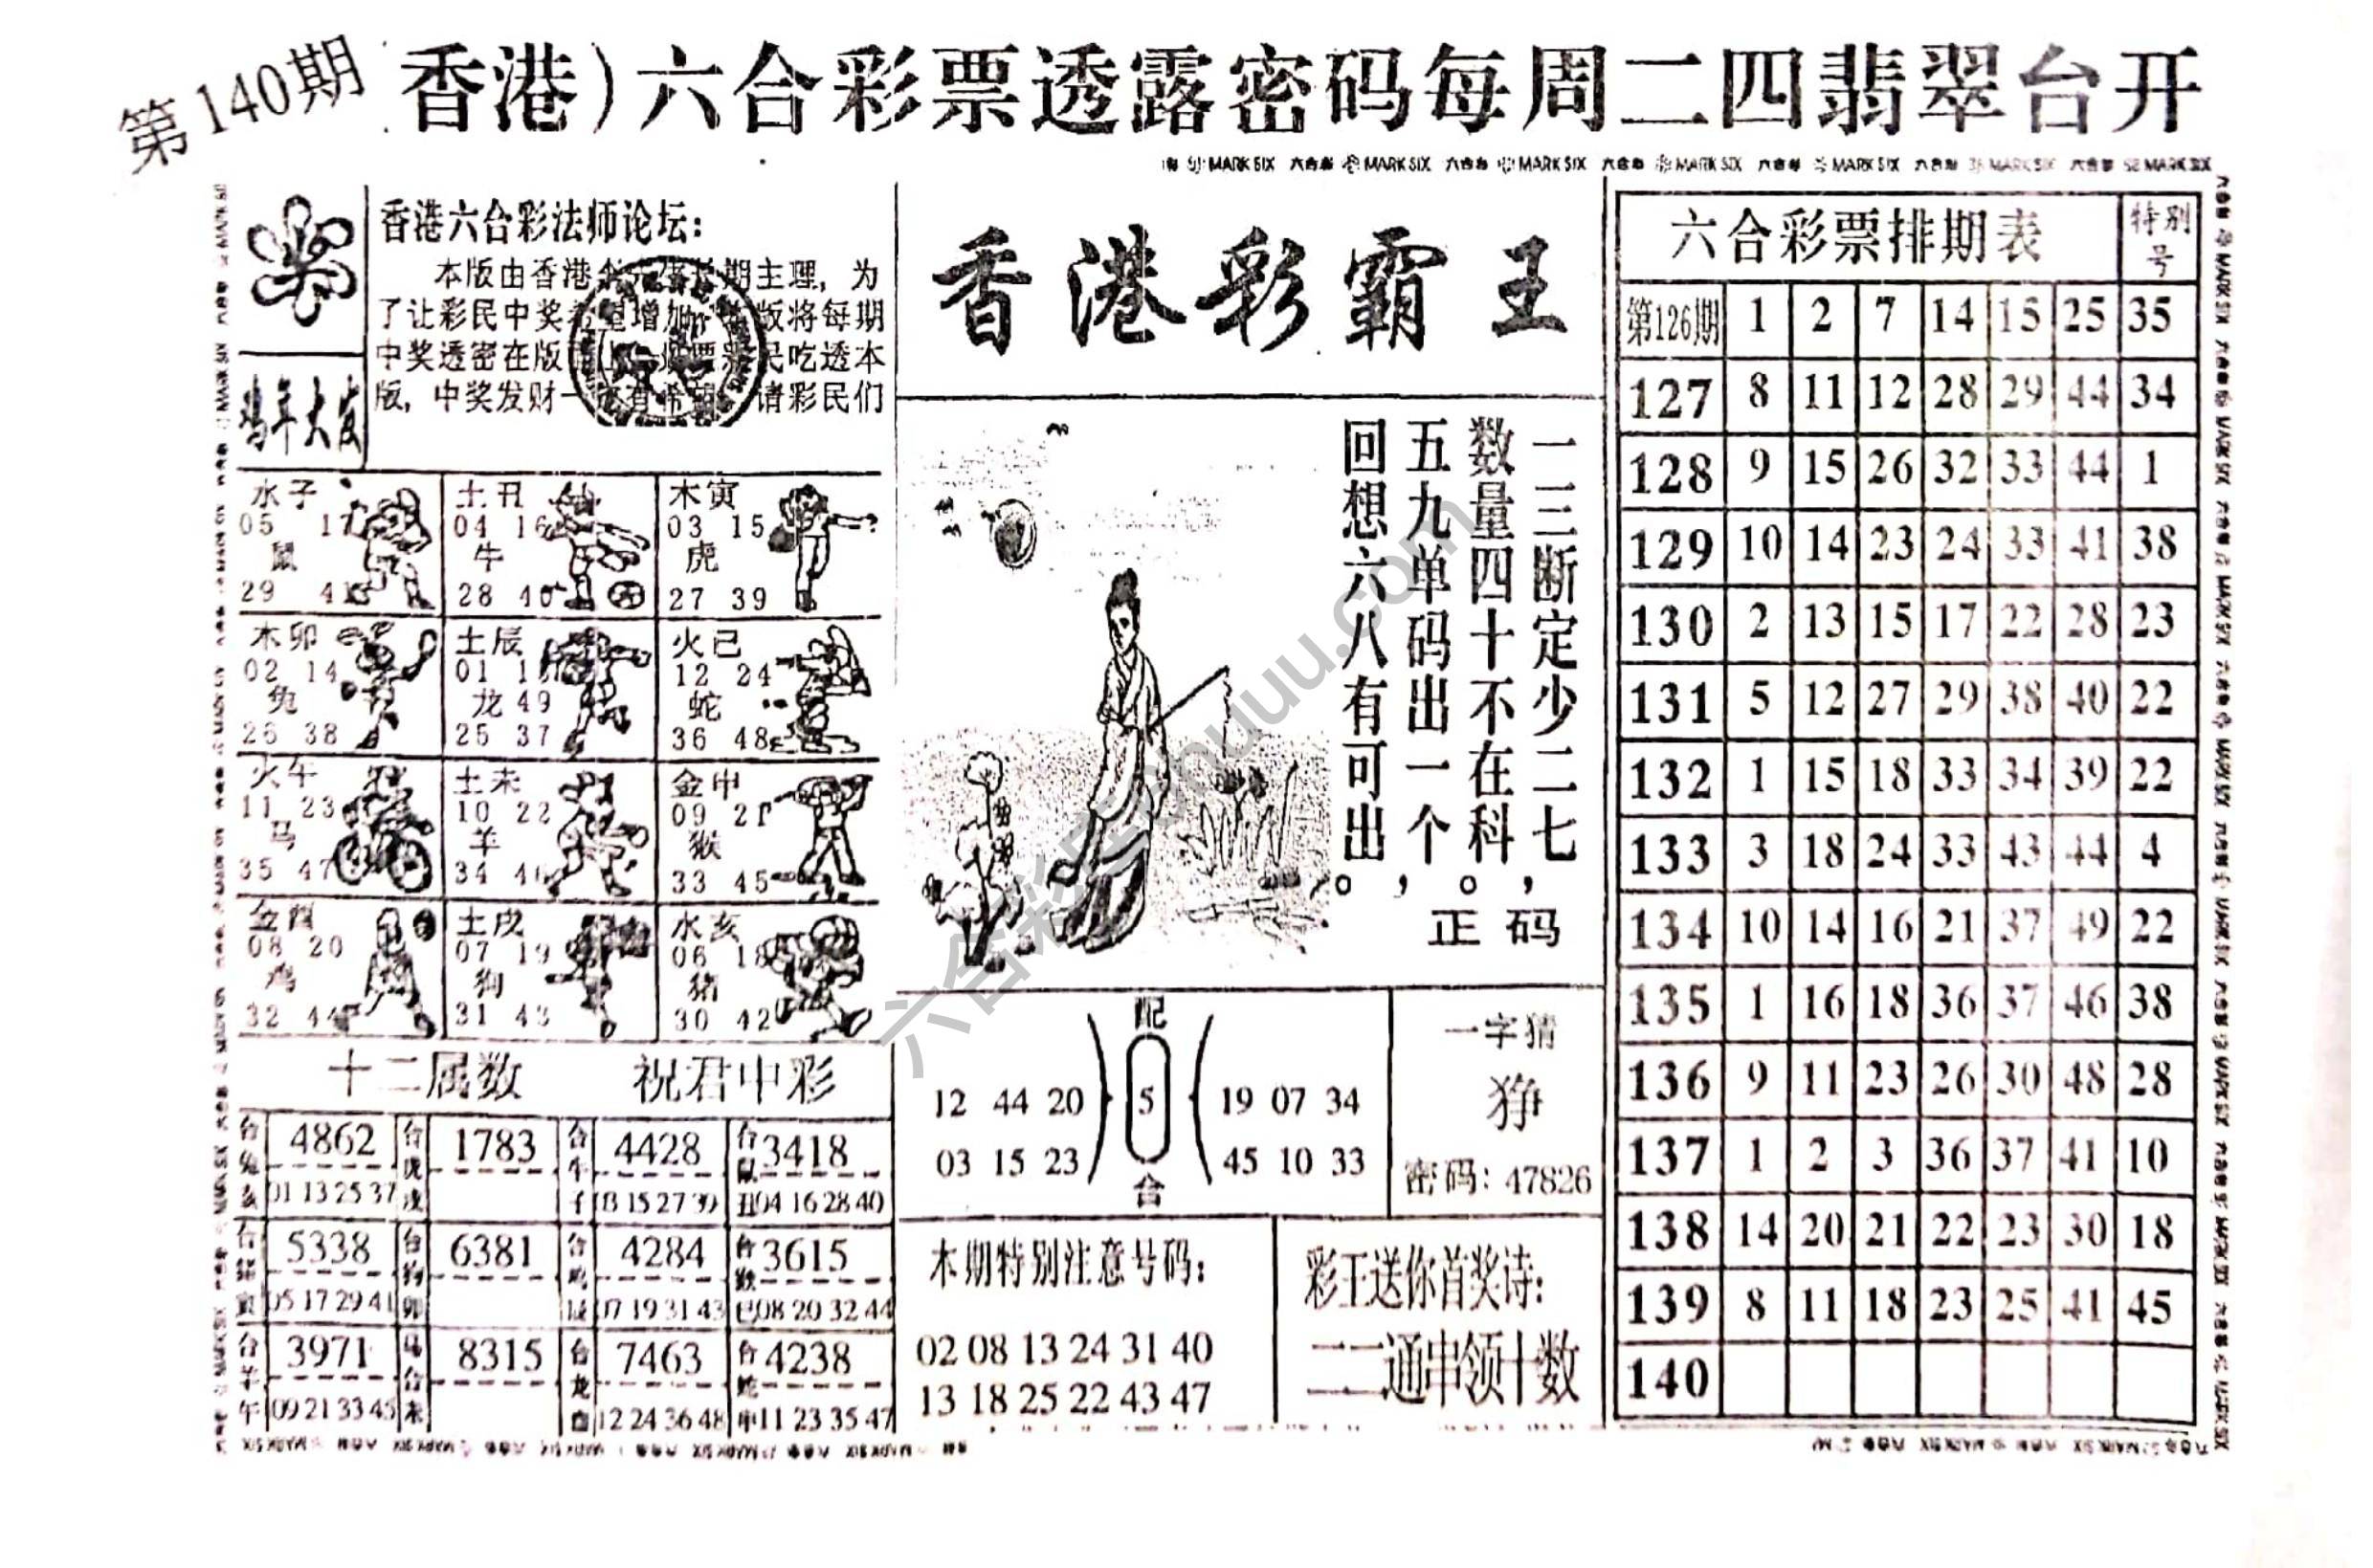 第140期
香港)六合彩票透露密码每周二四翡翠台开
香港六合彩法师论坛:
本版由香港 期主理, 为
了让彩民中奖 增加 版将每期
中奖透密在版 民吃透本
版, 中奖发财一 有希 请彩民们
鸡年大发
水子
05 17
鼠
29 41
土丑
04 16
牛
28 40
木寅
03 15
虎
27 39
木卯
02 14
兔
26 38
土辰
01
龙 49
25 37
火巳
12 24
蛇
36 48
火午
11 23
马
35 47
土未
10 22
羊
34 46
金申
09 21
猴
33 45
金酉
08 20
鸡
32 44
土戌
07 19
狗
31 43
水亥
06 18
猪
30 42
十二属数 祝君中彩
合兔亥 4862
01 13 25 37
合虎戌 1783
合牛子 4428
03 15 27 39
合鼠丑 3418
04 16 28 40
合猪寅 5338
05 17 29 41
合狗卯 6381
合鸡辰 4284
07 19 31 43
合猴巳 3615
08 20 32 44
合羊午 3971
09 21 33 45
马合未 8315
合龙酉 7463
12 24 36 48
合蛇申 4238
11 23 35 47
香港彩霸王
一三断定少二七,
数量四十不在科。
五九单码出一个,
回想六八有可出。
正码
配
12 44 20 5 19 07 34
03 15 23 45 10 33
合
一字猜
狰
密码: 47826
本期特别注意号码:
02 08 13 24 31 40
13 18 25 22 43 47
彩王送你首奖诗:
二二通串领十数
六合彩票排期表 特别号
第126期 1 2 7 14 15 25 35
127 8 11 12 28 29 44 34
128 9 15 26 32 33 44 1
129 10 14 23 24 33 41 38
130 2 13 15 17 22 28 23
131 5 12 27 29 38 40 22
132 1 15 18 33 34 39 22
133 3 18 24 33 43 44 4
134 10 14 16 21 37 49 22
135 1 16 18 36 37 46 38
136 9 11 23 26 30 48 28
137 1 2 3 36 37 41 10
138 14 20 21 22 23 30 18
139 8 11 18 23 25 41 45
140